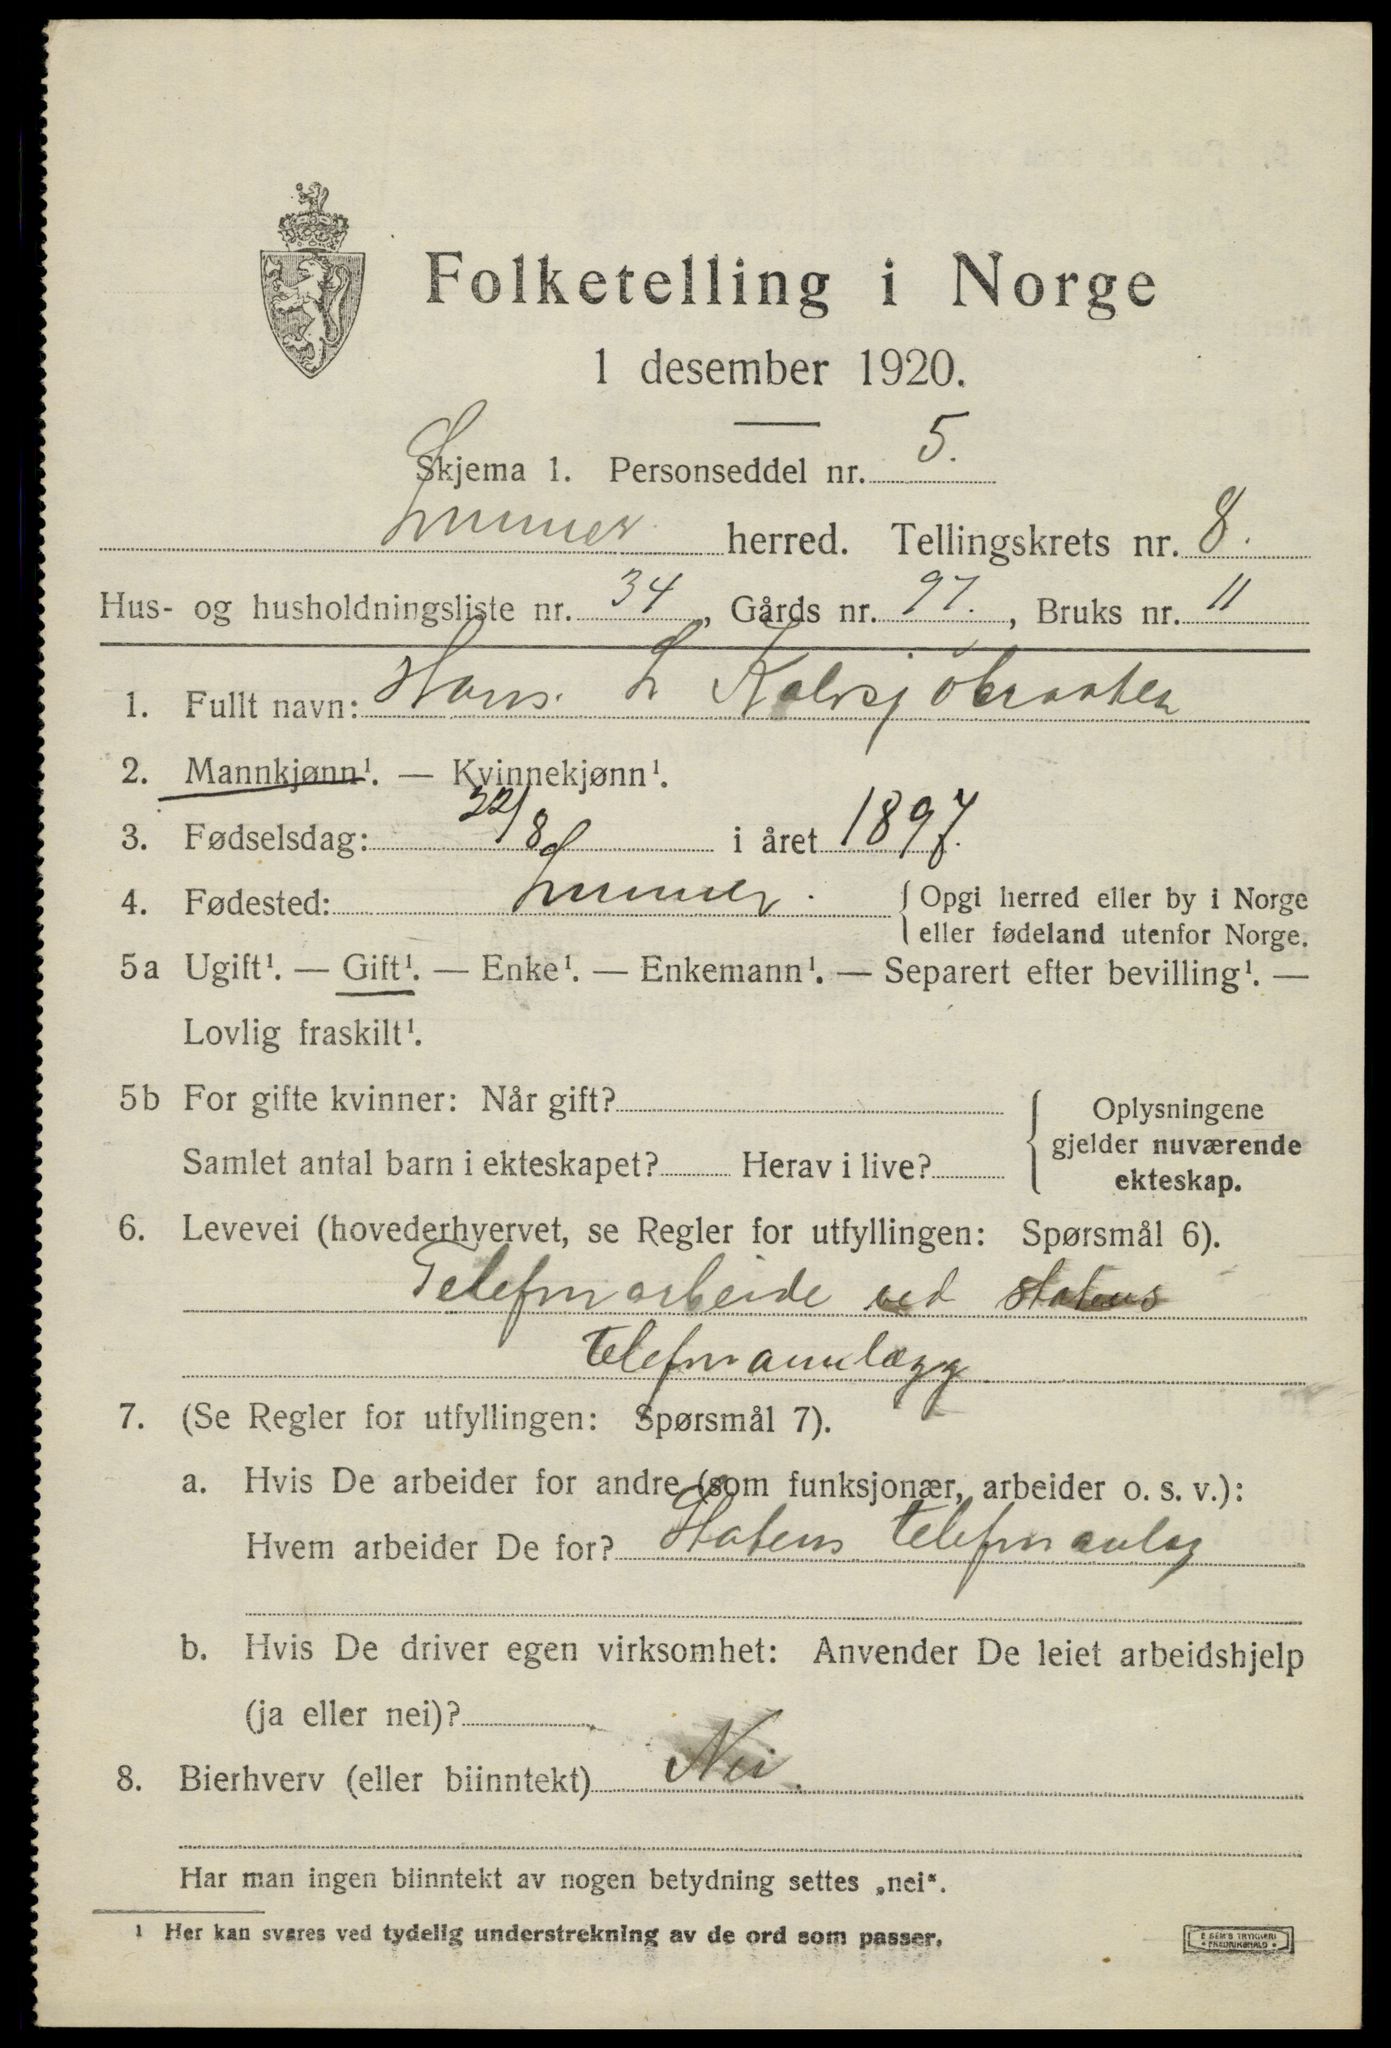 Folketelling i Norge
1 desember 1920.
Skjema 1. Personseddel nr. 5.
Lunner herred. Tellingskrets nr. 8.
Hus- og husholdningsliste nr. 34, Gårds nr. 97., Bruks nr. 11
1. Fullt navn: Hans. L Kalvsjøbraaten
2. Mannkjønn¹. — Kvinnekjønn¹.
3. Fødselsdag: 22/8 i året 1897.
4. Fødested: Lunner. { Opgi herred eller by i Norge
eller fødeland utenfor Norge.
5a Ugift¹. — Gift¹. — Enke¹. — Enkemann¹. — Separert efter bevilling¹. —
Lovlig fraskilt¹.
5b For gifte kvinner: Når gift?
Samlet antal barn i ekteskapet? Herav i live?
{ Oplysningene
gjelder nuværende
ekteskap.
6. Levevei (hovederhvervet, se Regler for utfyllingen: Spørsmål 6).
Telefonarbeide ved statens
telefonanlægg
7. (Se Regler for utfyllingen: Spørsmål 7).
a. Hvis De arbeider for andre (som funksjonær, arbeider o. s. v.):
Hvem arbeider De for? Statens telefonanlæg
b. Hvis De driver egen virksomhet: Anvender De leiet arbeidshjelp
(ja eller nei)?
8. Bierhverv (eller biinntekt) Nei.
Har man ingen biinntekt av nogen betydning settes „nei“.
¹ Her kan svares ved tydelig understrekning av de ord som passer.
E SEM'S TRYKKERI
• FREDRIKSHALD •